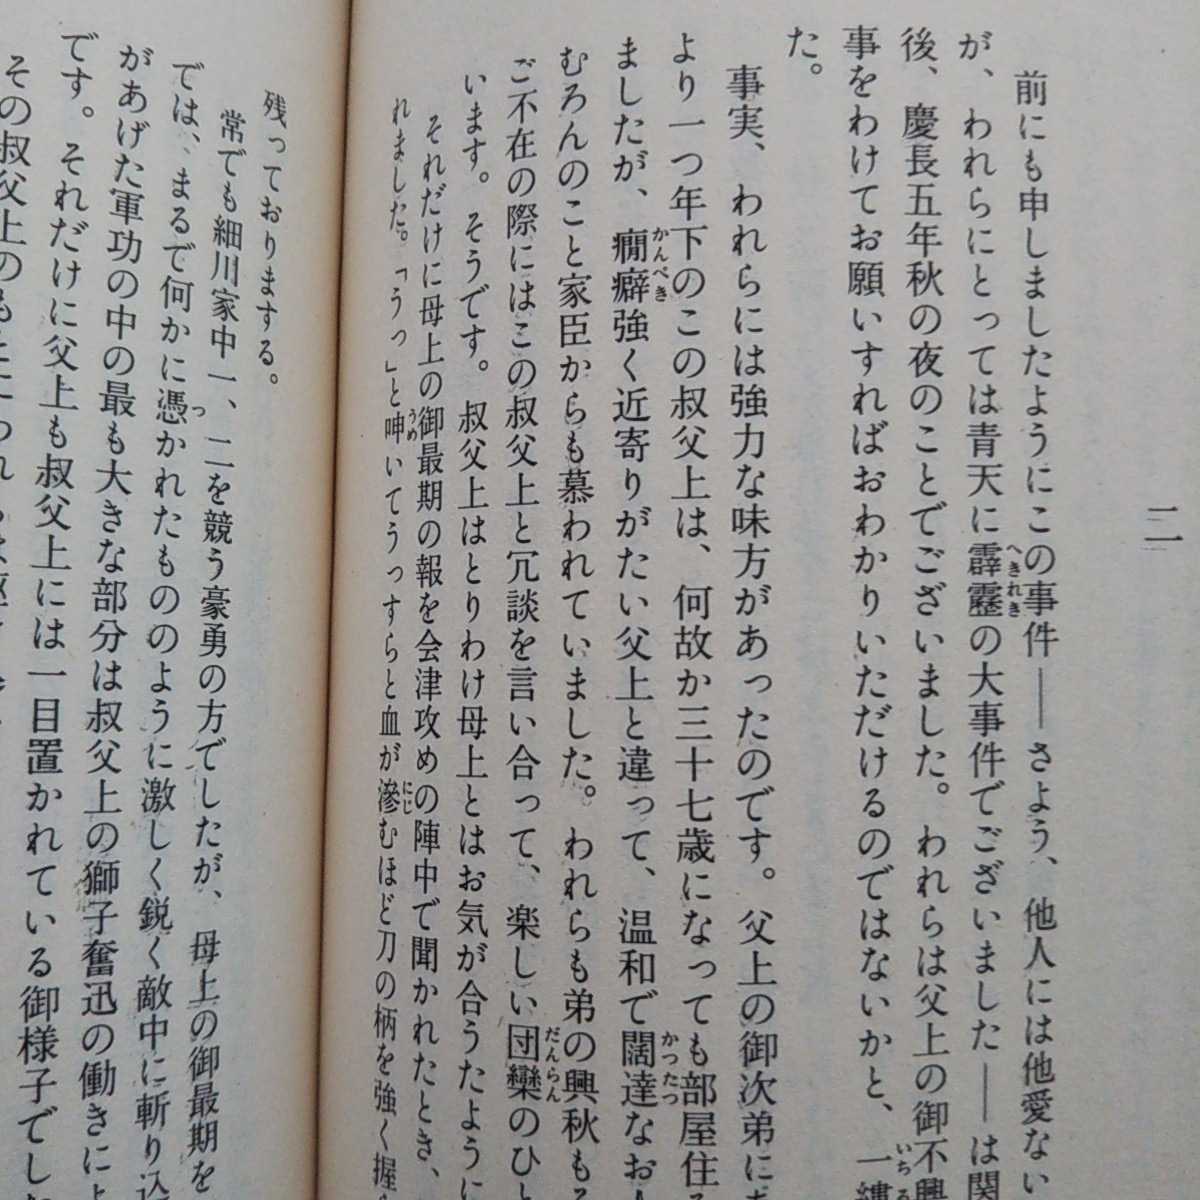 二
前にも申しましたようにこの事件――さよう、他人には他愛ない
が、われらにとっては青天に霹靂の大事件でございました――は関
後、慶長五年秋の夜のことでございました。われらは父上の御不興
事をわけてお願いすればおわかりいただけるのではないかと、一縷
た。
事実、われらには強力な味方があったのです。父上の御次弟にあ
より一つ年下のこの叔父上は、何故か三十七歳になっても部屋住
ましたが、癇癖強く近寄りがたい父上と違って、温和で闊達なお
むろんのこと家臣からも慕われていました。われらも弟の興秋も
ご不在の際にはこの叔父上と冗談を言い合って、楽しい団欒のひと
います。そうです。叔父上はとりわけ母上とはお気が合うたように
それだけに母上の御最期の報を会津攻めの陣中で聞かれたとき、
れました。「うっ」と呻いてうっすらと血が滲むほど刀の柄を強く握
残っておりまする。
常でも細川家中一、二を競う豪勇の方でしたが、母上の御最期を
では、まるで何かに憑かれたもののように激しく鋭く敵中に斬り込
があげた軍功の中の最も大きな部分は叔父上の獅子奮迅の働きに
です。それだけに父上も叔父上には一目置かれている御様子でし
その叔父上のもとに